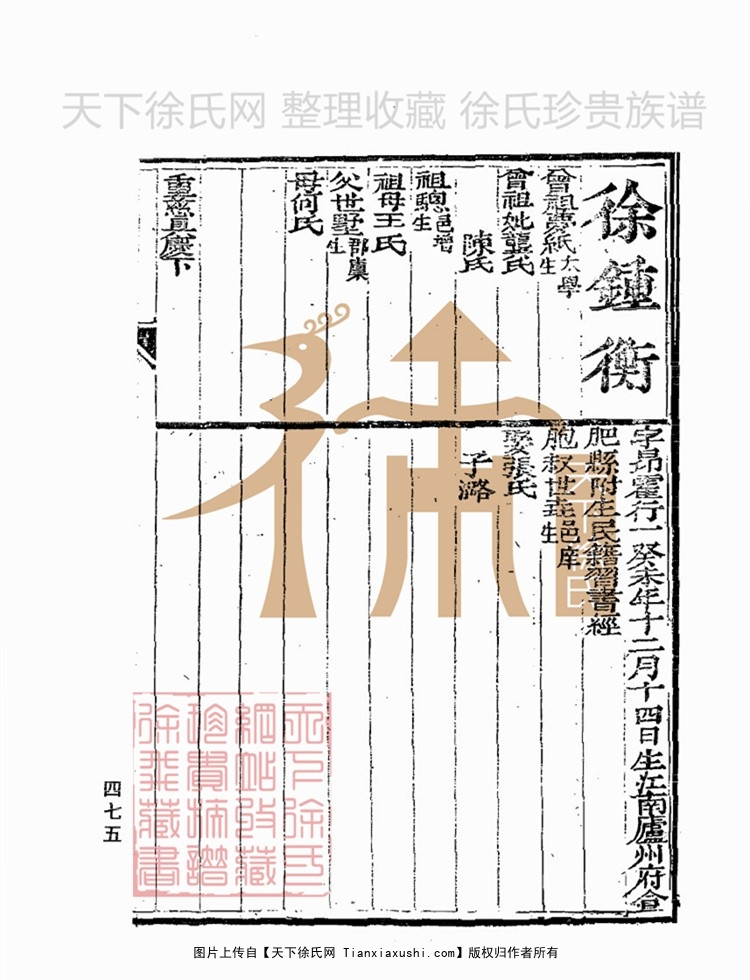 天下徐氏网 整理收藏 徐氏珍贵族谱
徐鍾衡
曾祖夢紙太學生
曾祖妣龔氏
陳氏
祖驄邑增生
祖母王氏
父世墅郡廩生
母何氏
重慈具慶下
字昴霍行一癸未年十二月十四日生江南廬州府合
肥縣附生民籍習書經
胞叔世垚邑庠生
娶張氏
子潞
四七五
天下徐氏
網站收藏
珍貴族譜
徐燕藏書
图片上传自【天下徐氏网 Tianxiaxushi.com】版权归作者所有